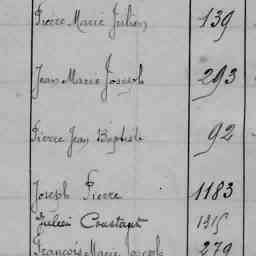 Pierre Marie Julien 139
Jean Marie Joseph 293
Pierre Jean Baptiste 92
Joseph Pierre 1183
Julien Constant 1315
François Marie Joseph 279